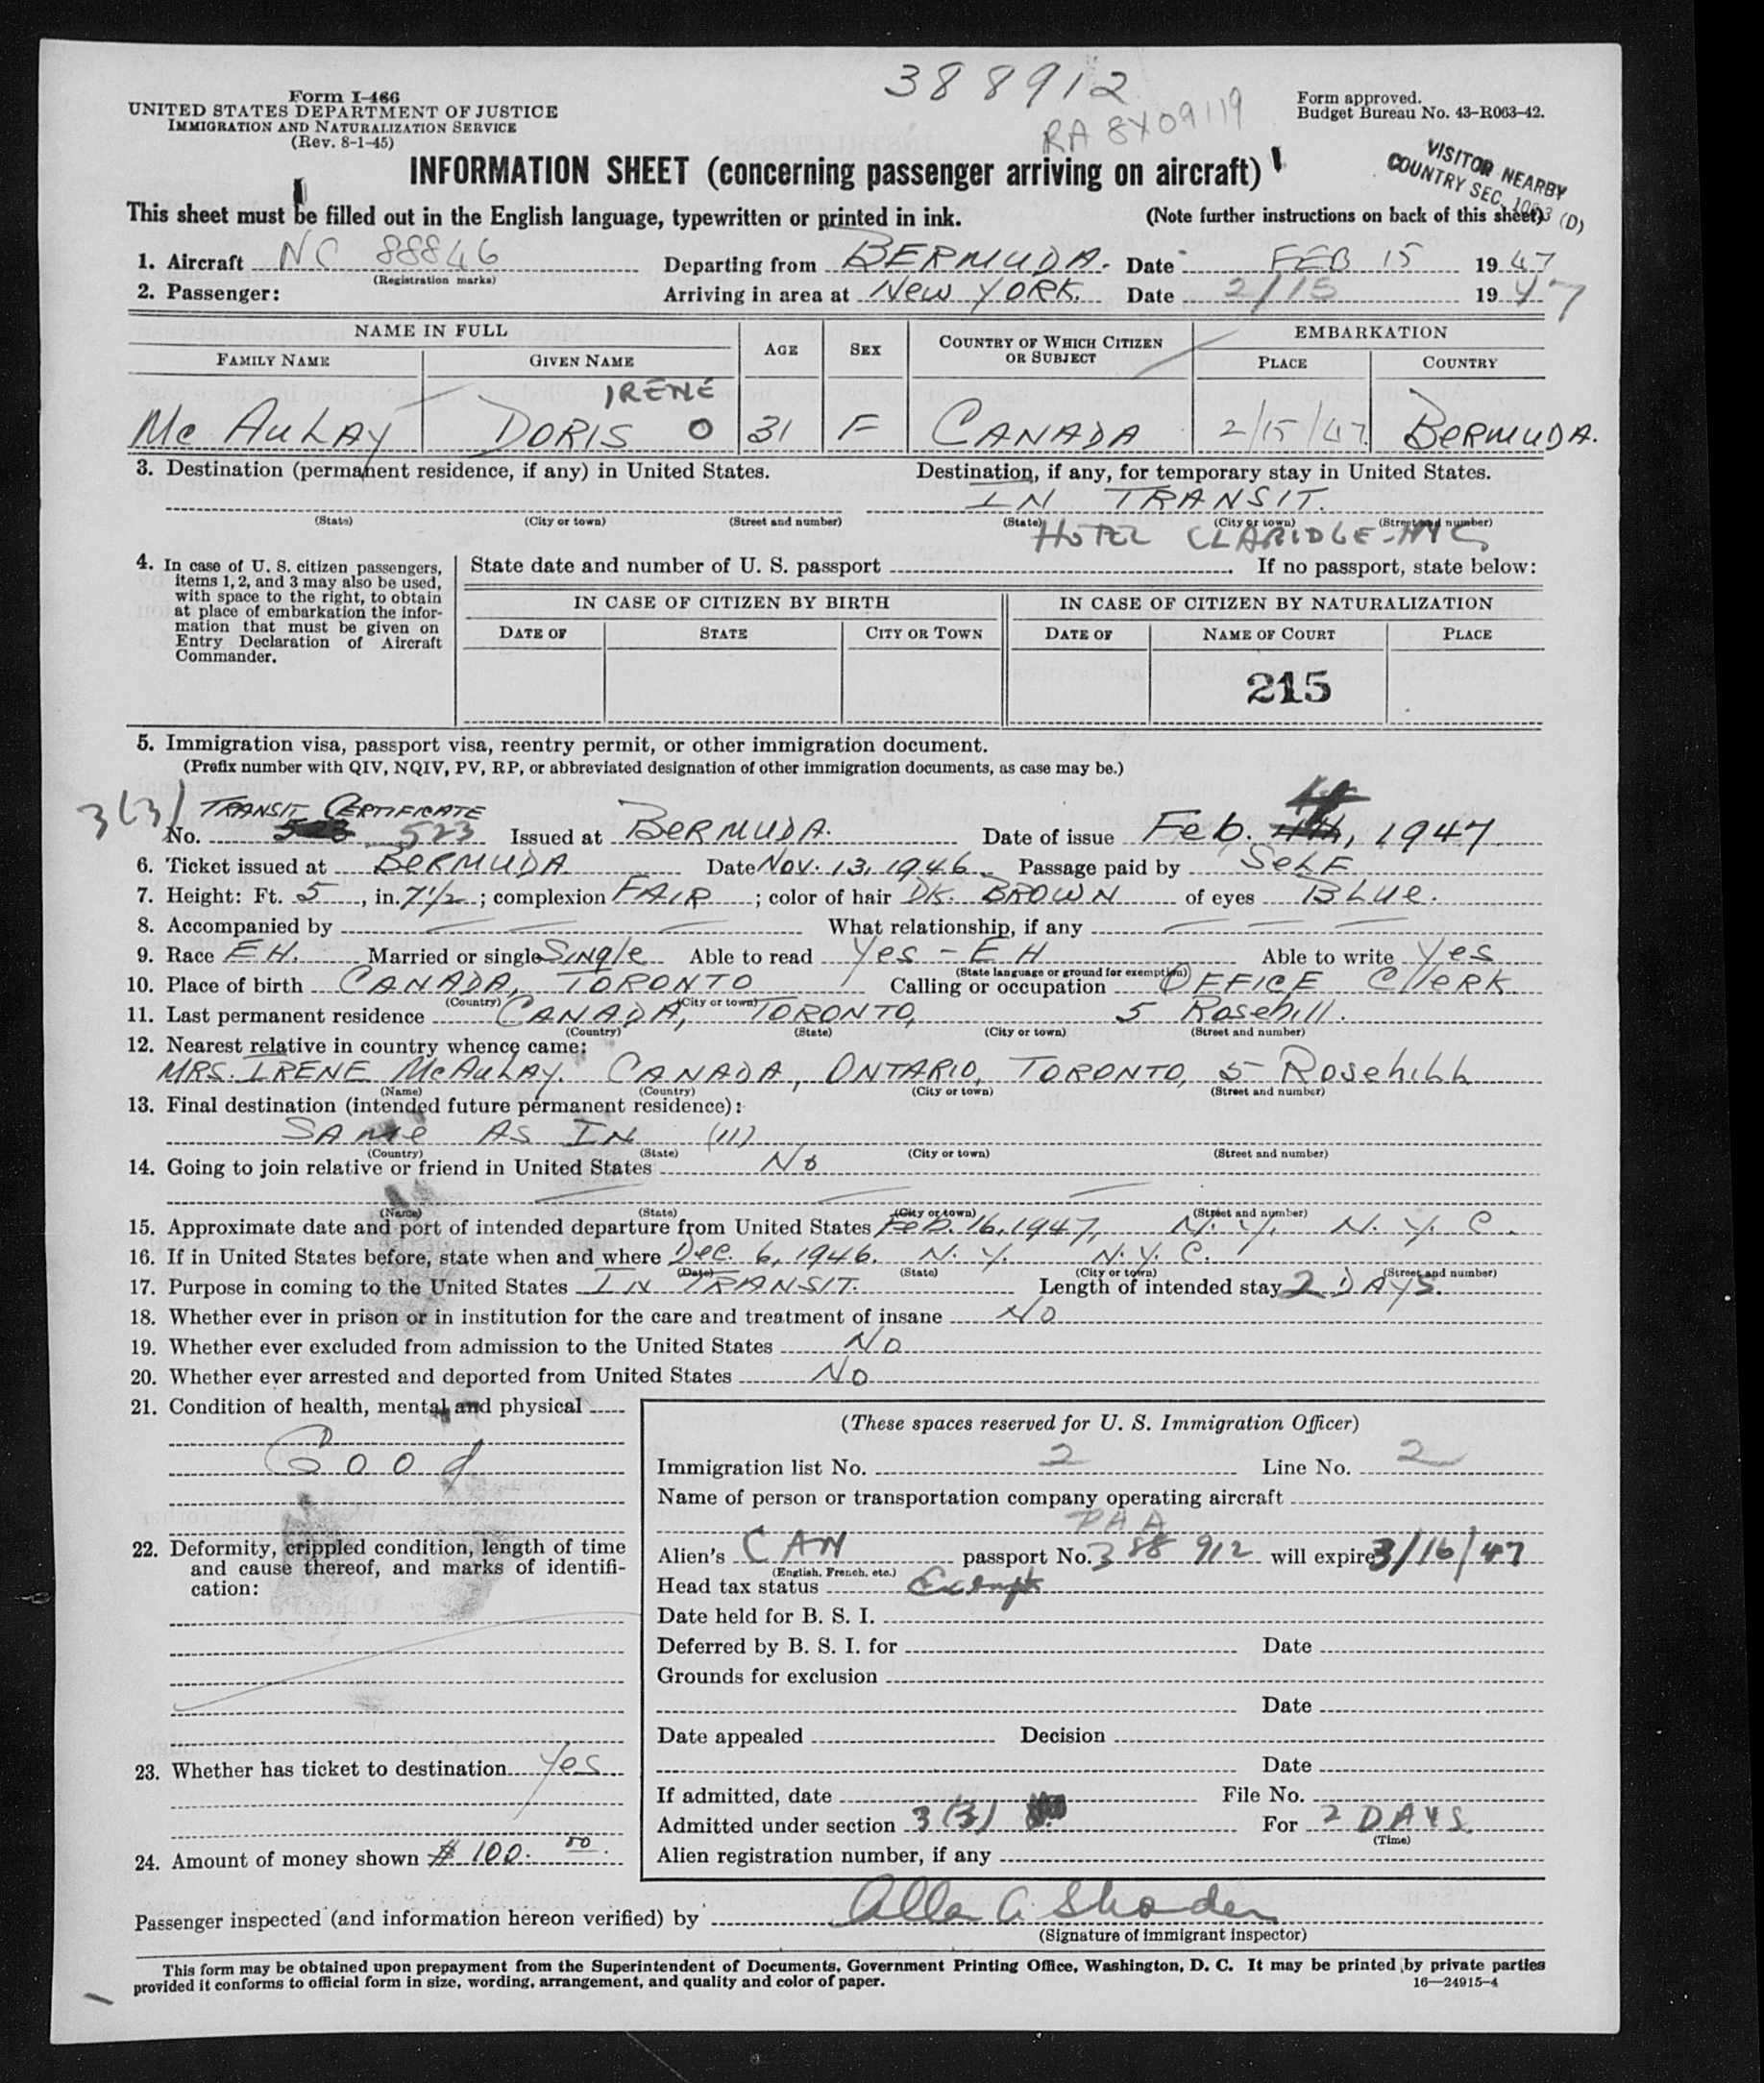 388912
RA 8X09119
Form I-466
UNITED STATES DEPARTMENT OF JUSTICE
IMMIGRATION AND NATURALIZATION SERVICE
(Rev. 8-1-45)
Form approved.
Budget Bureau No. 43-R063-42.
INFORMATION SHEET (concerning passenger arriving on aircraft)
VISITOR NEARBY
COUNTRY SEC. (D)
This sheet must be filled out in the English language, typewritten or printed in ink. (Note further instructions on back of this sheet)
1. Aircraft NC 88846 Departing from BERMUDA. Date FEB 15 1947
(Registration marks)
2. Passenger: Arriving in area at New YORK. Date 2/15 1947
NAME IN FULL AGE SEX COUNTRY OF WHICH CITIZEN OR SUBJECT EMBARKATION
FAMILY NAME GIVEN NAME PLACE COUNTRY
IRENE
Mc AuLAy DORIS O 31 F CANADA 2/15/47 BERMUDA.
3. Destination (permanent residence, if any) in United States. Destination, if any, for temporary stay in United States.
IN TRANSIT.
(State) (City or town) (Street and number) (State) (City or town) (Street and number)
HOTEL CLARIDGE-NYC
4. In case of U. S. citizen passengers, items 1, 2, and 3 may also be used, with space to the right, to obtain at place of embarkation the information that must be given on Entry Declaration of Aircraft Commander.
State date and number of U. S. passport If no passport, state below:
IN CASE OF CITIZEN BY BIRTH IN CASE OF CITIZEN BY NATURALIZATION
DATE OF STATE CITY OR TOWN DATE OF NAME OF COURT PLACE
215
5. Immigration visa, passport visa, reentry permit, or other immigration document.
(Prefix number with QIV, NQIV, PV, RP, or abbreviated designation of other immigration documents, as case may be.)
3(3) TRANSIT CERTIFICATE
No. 523 Issued at BERMUDA. Date of issue Feb. , 1947.
6. Ticket issued at BERMUDA Date Nov. 13, 1946. Passage paid by SELF
7. Height: Ft. 5, in. 7 1/2; complexion FAIR; color of hair DK. BROWN of eyes BLue.
8. Accompanied by What relationship, if any
9. Race EH. Married or single Single Able to read Yes - EH Able to write Yes
(State language or ground for exemption)
10. Place of birth CANADA, TORONTO Calling or occupation OFFICE ClERK.
(Country) (City or town)
11. Last permanent residence CANADA, TORONTO, 5 Rosehill.
(Country) (State) (City or town) (Street and number)
12. Nearest relative in country whence came:
MRS. IRENE McAuLAY. CANADA, ONTARIO, TORONTO, 5 Rosehill
(Name) (Country) (City or town) (Street and number)
13. Final destination (intended future permanent residence):
SAMe AS IN (11)
(Country) (State) (City or town) (Street and number)
14. Going to join relative or friend in United States No
(Name) (State) (City or town) (Street and number)
15. Approximate date and port of intended departure from United States Feb. 16, 1947, N. Y. N. Y. C.
16. If in United States before, state when and where Dec. 6, 1946. N. Y. N. Y. C.
(Date) (State) (City or town) (Street and number)
17. Purpose in coming to the United States IN TRANSIT. Length of intended stay 2 DAYS.
18. Whether ever in prison or in institution for the care and treatment of insane No
19. Whether ever excluded from admission to the United States No
20. Whether ever arrested and deported from United States No
21. Condition of health, mental and physical
Good
22. Deformity, crippled condition, length of time and cause thereof, and marks of identification:
23. Whether has ticket to destination Yes
24. Amount of money shown $ 100.00.
(These spaces reserved for U. S. Immigration Officer)
Immigration list No. 2 Line No. 2
Name of person or transportation company operating aircraft
PAA
Alien's CAN passport No. 388912 will expire 3/16/47
(English, French, etc.)
Head tax status Exempt
Date held for B. S. I.
Deferred by B. S. I. for Date
Grounds for exclusion
Date
Date appealed Decision
Date
If admitted, date File No.
Admitted under section 3(3) For 2 DAYS.
(Time)
Alien registration number, if any
Passenger inspected (and information hereon verified) by
(Signature of immigrant inspector)
This form may be obtained upon prepayment from the Superintendent of Documents, Government Printing Office, Washington, D. C. It may be printed by private parties
provided it conforms to official form in size, wording, arrangement, and quality and color of paper. 16—24915-4